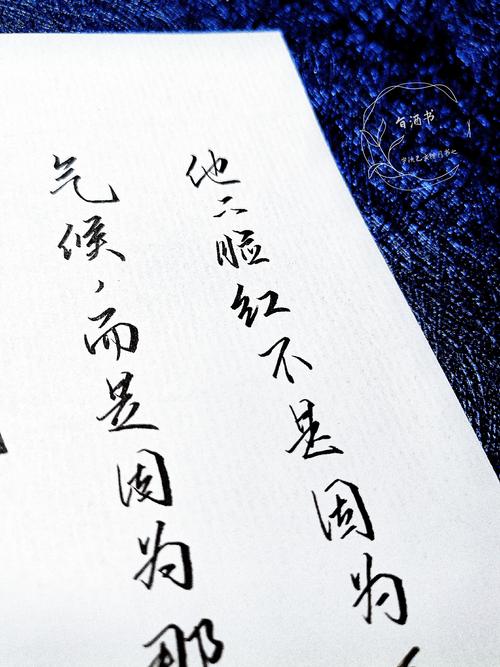 他二脸红不是因为
气候，而是因为那
旬酒书